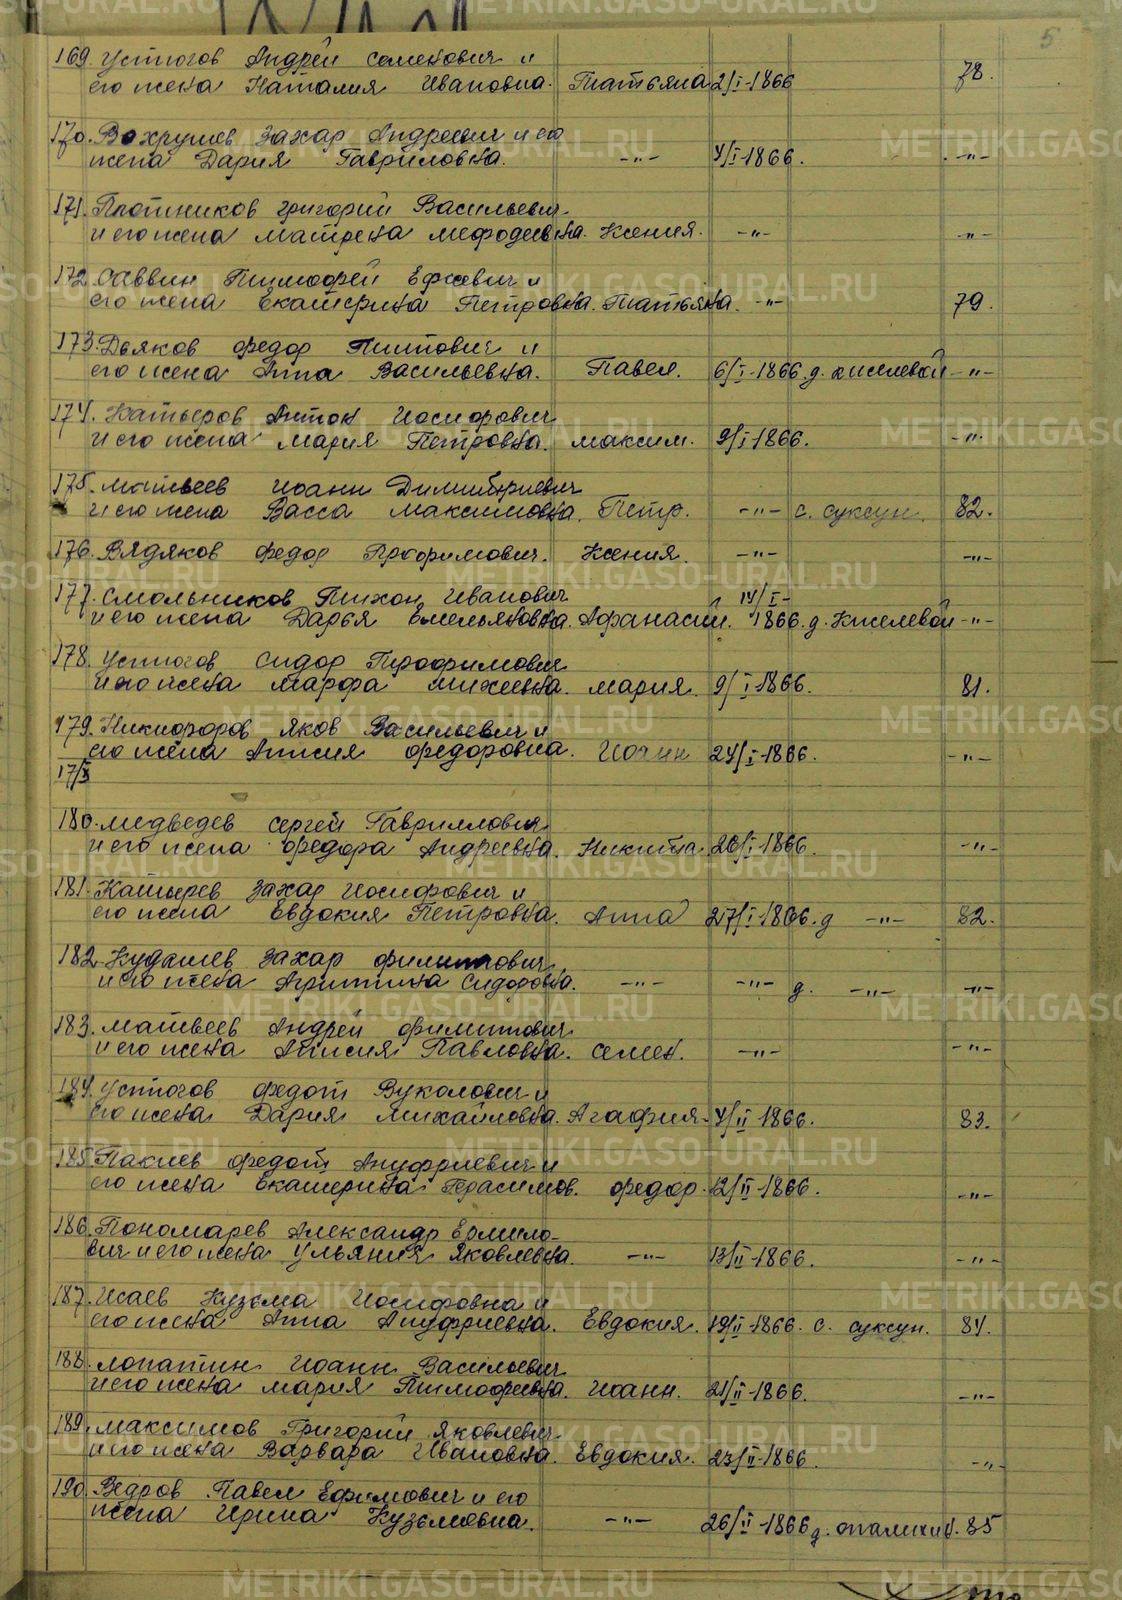 5
169. Устюгов Андрей Семенович и
его жена Наталия Ивановна. Татьяна 2/I-1866 78.
170. Вахрушев Захар Андреевич и его
жена Дария Гавриловна. -"- 4/I-1866. -"-
171. Плотников Григорий Васильевич
и его жена Матрена Мефодеевна. Ксения. -"- -"-
172. Саввин Тимофей Ефиевич и
его жена Екатерина Петровна. Татьяна. -"- 79.
173. Дьяков Федор Титович и
его жена Анна Васильевна. Павел. 6/I-1866. д. Киселевой -"-
174. Катыров Антон Иосифович
и его жена Мария Петровна. Максим. 9/I-1866. -"-
175. Матвеев Иоанн Димитриевич
и его жена Васса Максимовна. Петр. -"- с. Суксун. 82.
176. Вядяков Федор Трофимович. Ксения. -"- -"-
177. Смольников Тихон Иванович 14/I-
и его жена Дарья Емельяновна. Афанасий. 1866. д. Киселевой -"-
178. Устюгов Сидор Трофимович
и его жена Марфа Михеевна. Мария. 9/I-1866. 81.
179. Никифоров Яков Васильевич и
его жена Анисия Федоровна. Иоанн 24/I-1866. -"-
17/X
180. Медведев Сергей Гавриллович
и его жена Федора Андреевна. Никита 26/I-1866. -"-
181. Катырев Захар Иосифович и
его жена Евдокия Петровна. Анна 27/I-1866. д -"- 82.
182. Кудашев Захар Филиппович
и его жена Агриппина Сидоровна. -"- -"- д. -"- -"-
183. Матвеев Андрей Филиппович
и его жена Анисия Павловна. Семен. -"- -"-
184. Устюгов Федот Вуколович и
его жена Дария Михайловна. Агафия. 4/II-1866. 83.
185. Пакиев Федот Ануфриевич и
его жена Екатерина Герасимов. Федор. 12/II-1866. -"-
186. Пономарев Александр Ермило-
вич и его жена Ульяния Яковлевна. -"- 13/II-1866. -"-
187. Исаев Кузьма Иосифовна и
его жена Анна Ануфриевна. Евдокия. 19/II-1866. с. Суксун. 84.
188. Лопатин Иоанн Васильевич
и его жена Мария Тимофеевна. Иоанн. 21/II-1866. -"-
189. Максимов Григорий Яковлевич
и его жена Варвара Ивановна. Евдокия. 23/II-1866. -"-
190. Ведров Павел Ефимович и его
жена Ирина Кузьмовна. -"- 26/II-1866 д. Опалихи. 85
METRIKI.GASO-URAL.RU